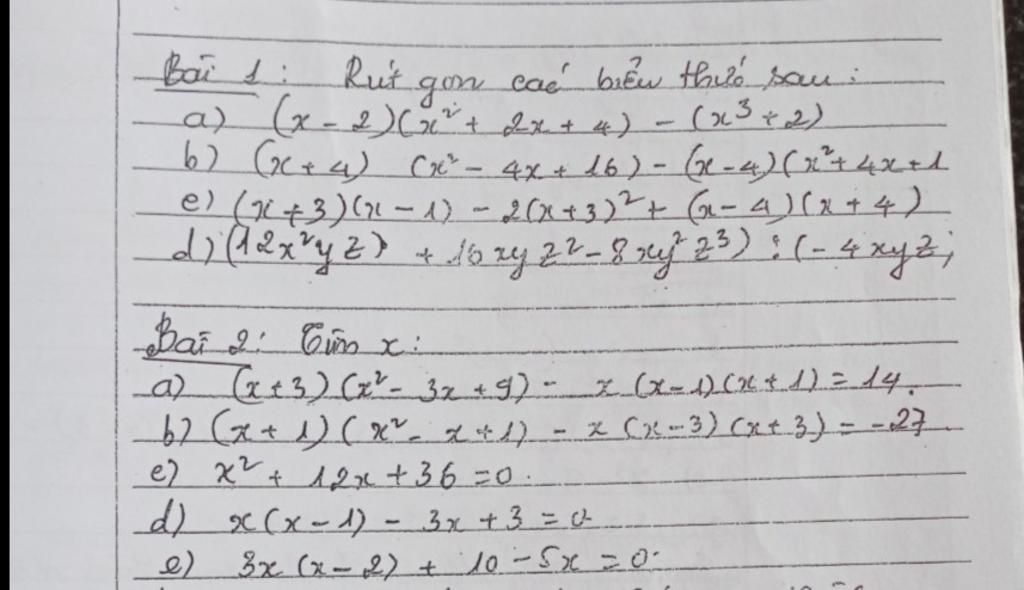 Bài 1: Rút gọn các biểu thức sau:
a) (x - 2)(x² + 2x + 4) - (x³ + 2)
b) (x + 4) (x² - 4x + 16) - (x - 4)(x² + 4x + 1
c) (x + 3)(x - 1) - 2(x + 3)² + (x - 4)(x + 4)
d) (12x²yz) + 16xyz² - 8xy²z³) : (- 4xyz)
Bài 2: Tìm x:
a) (x + 3)(x² - 3x + 9) - x(x - 1)(x + 1) = 14.
b) (x + 1)(x² - x + 1) - x(x - 3)(x + 3) = -27
c) x² + 12x + 36 = 0.
d) x(x - 1) - 3x + 3 = 0
e) 3x(x - 2) + 10 - 5x = 0.